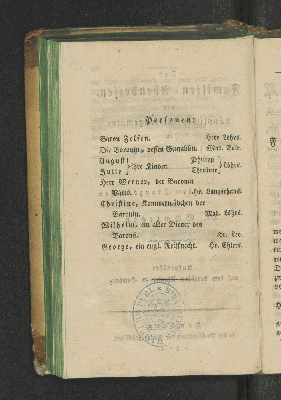 Personen:
Baron Felsen. Herr Lohrs.
Die Baronin, dessen Gemahlin. Mad.
August } ihre Kinder. Philipp } Löhrs.
Julie Christine
Herr Werner, der Baronin
Vater. Hr. Langerhans.
Christine, Kammermädchen der
Baronin. Mad. Löhrs.
Wilhelm, ein alter Diener des
Barons. Hr. Leo.
George, ein engl. Reitknecht. Hr. Ehlers.